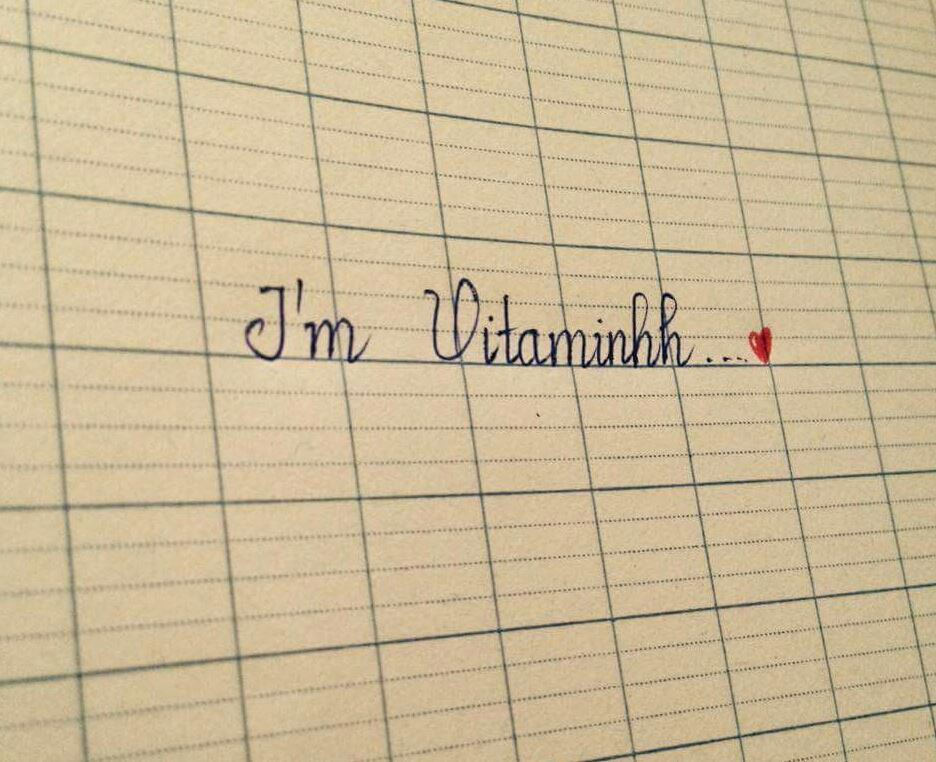 I'm Vitaminhh....